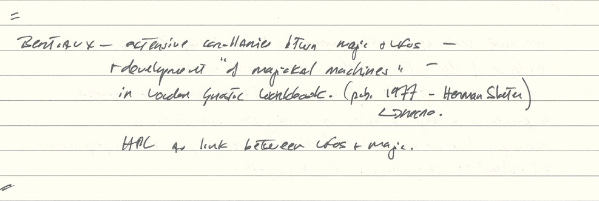 =
BERTIAUX – extensive corollaries btwn magic + UFOs –
+ development "of magickal machines" –
in Voudon Gnostic Workbook. (pub. 1977 – Herman Slater)
HPL as link between UFOs + magic.